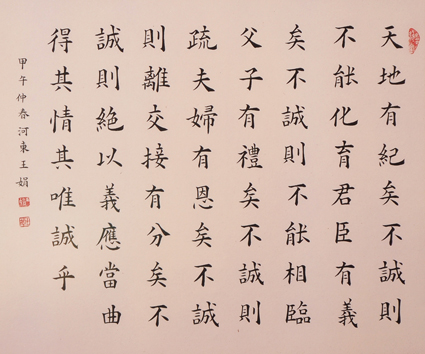 天地有紀矣不誠則
不能化育君臣有義
矣不誠則不能相臨
父子有禮矣不誠則
疏夫婦有恩矣不誠
則離交接有分矣不
誠則絕以義應當曲
得其情其唯誠乎
甲午仲春河東王娟